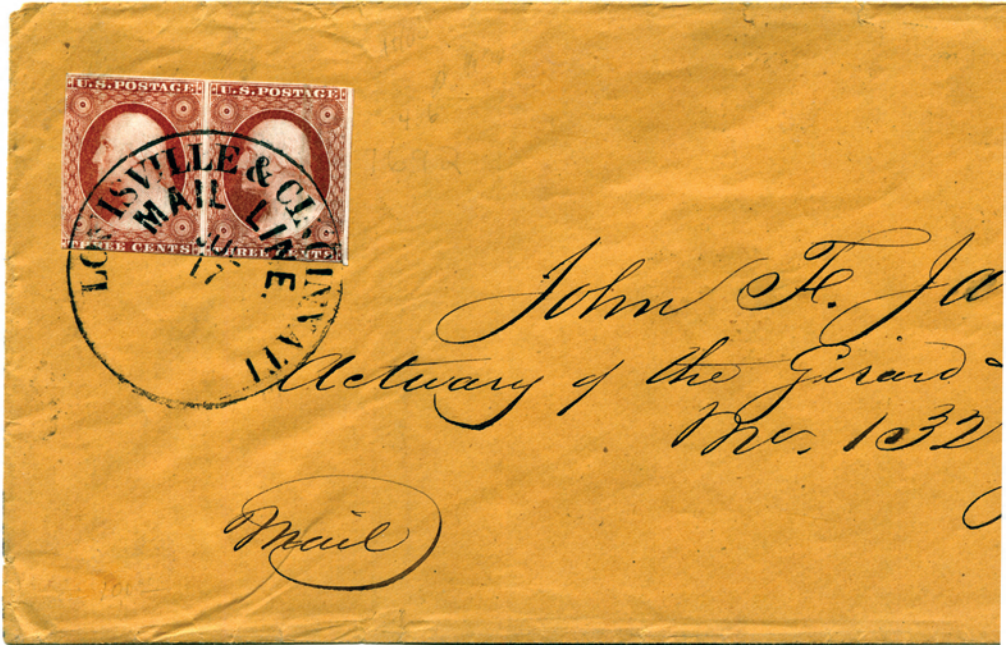 U.S. POSTAGE U.S. POSTAGE
THREE CENTS THREE CENTS
LOUISVILLE & CINCINNATI
MAIL LINE.
17
John F. Ja
Actuary of the Girard
No. 132
Mail